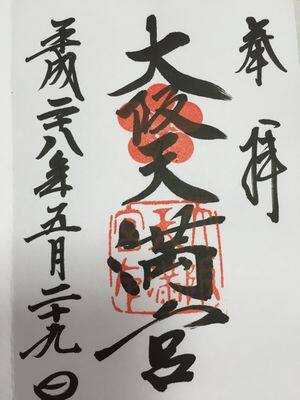 奉拝
大阪天満宮
平成二十八年五月二十九日